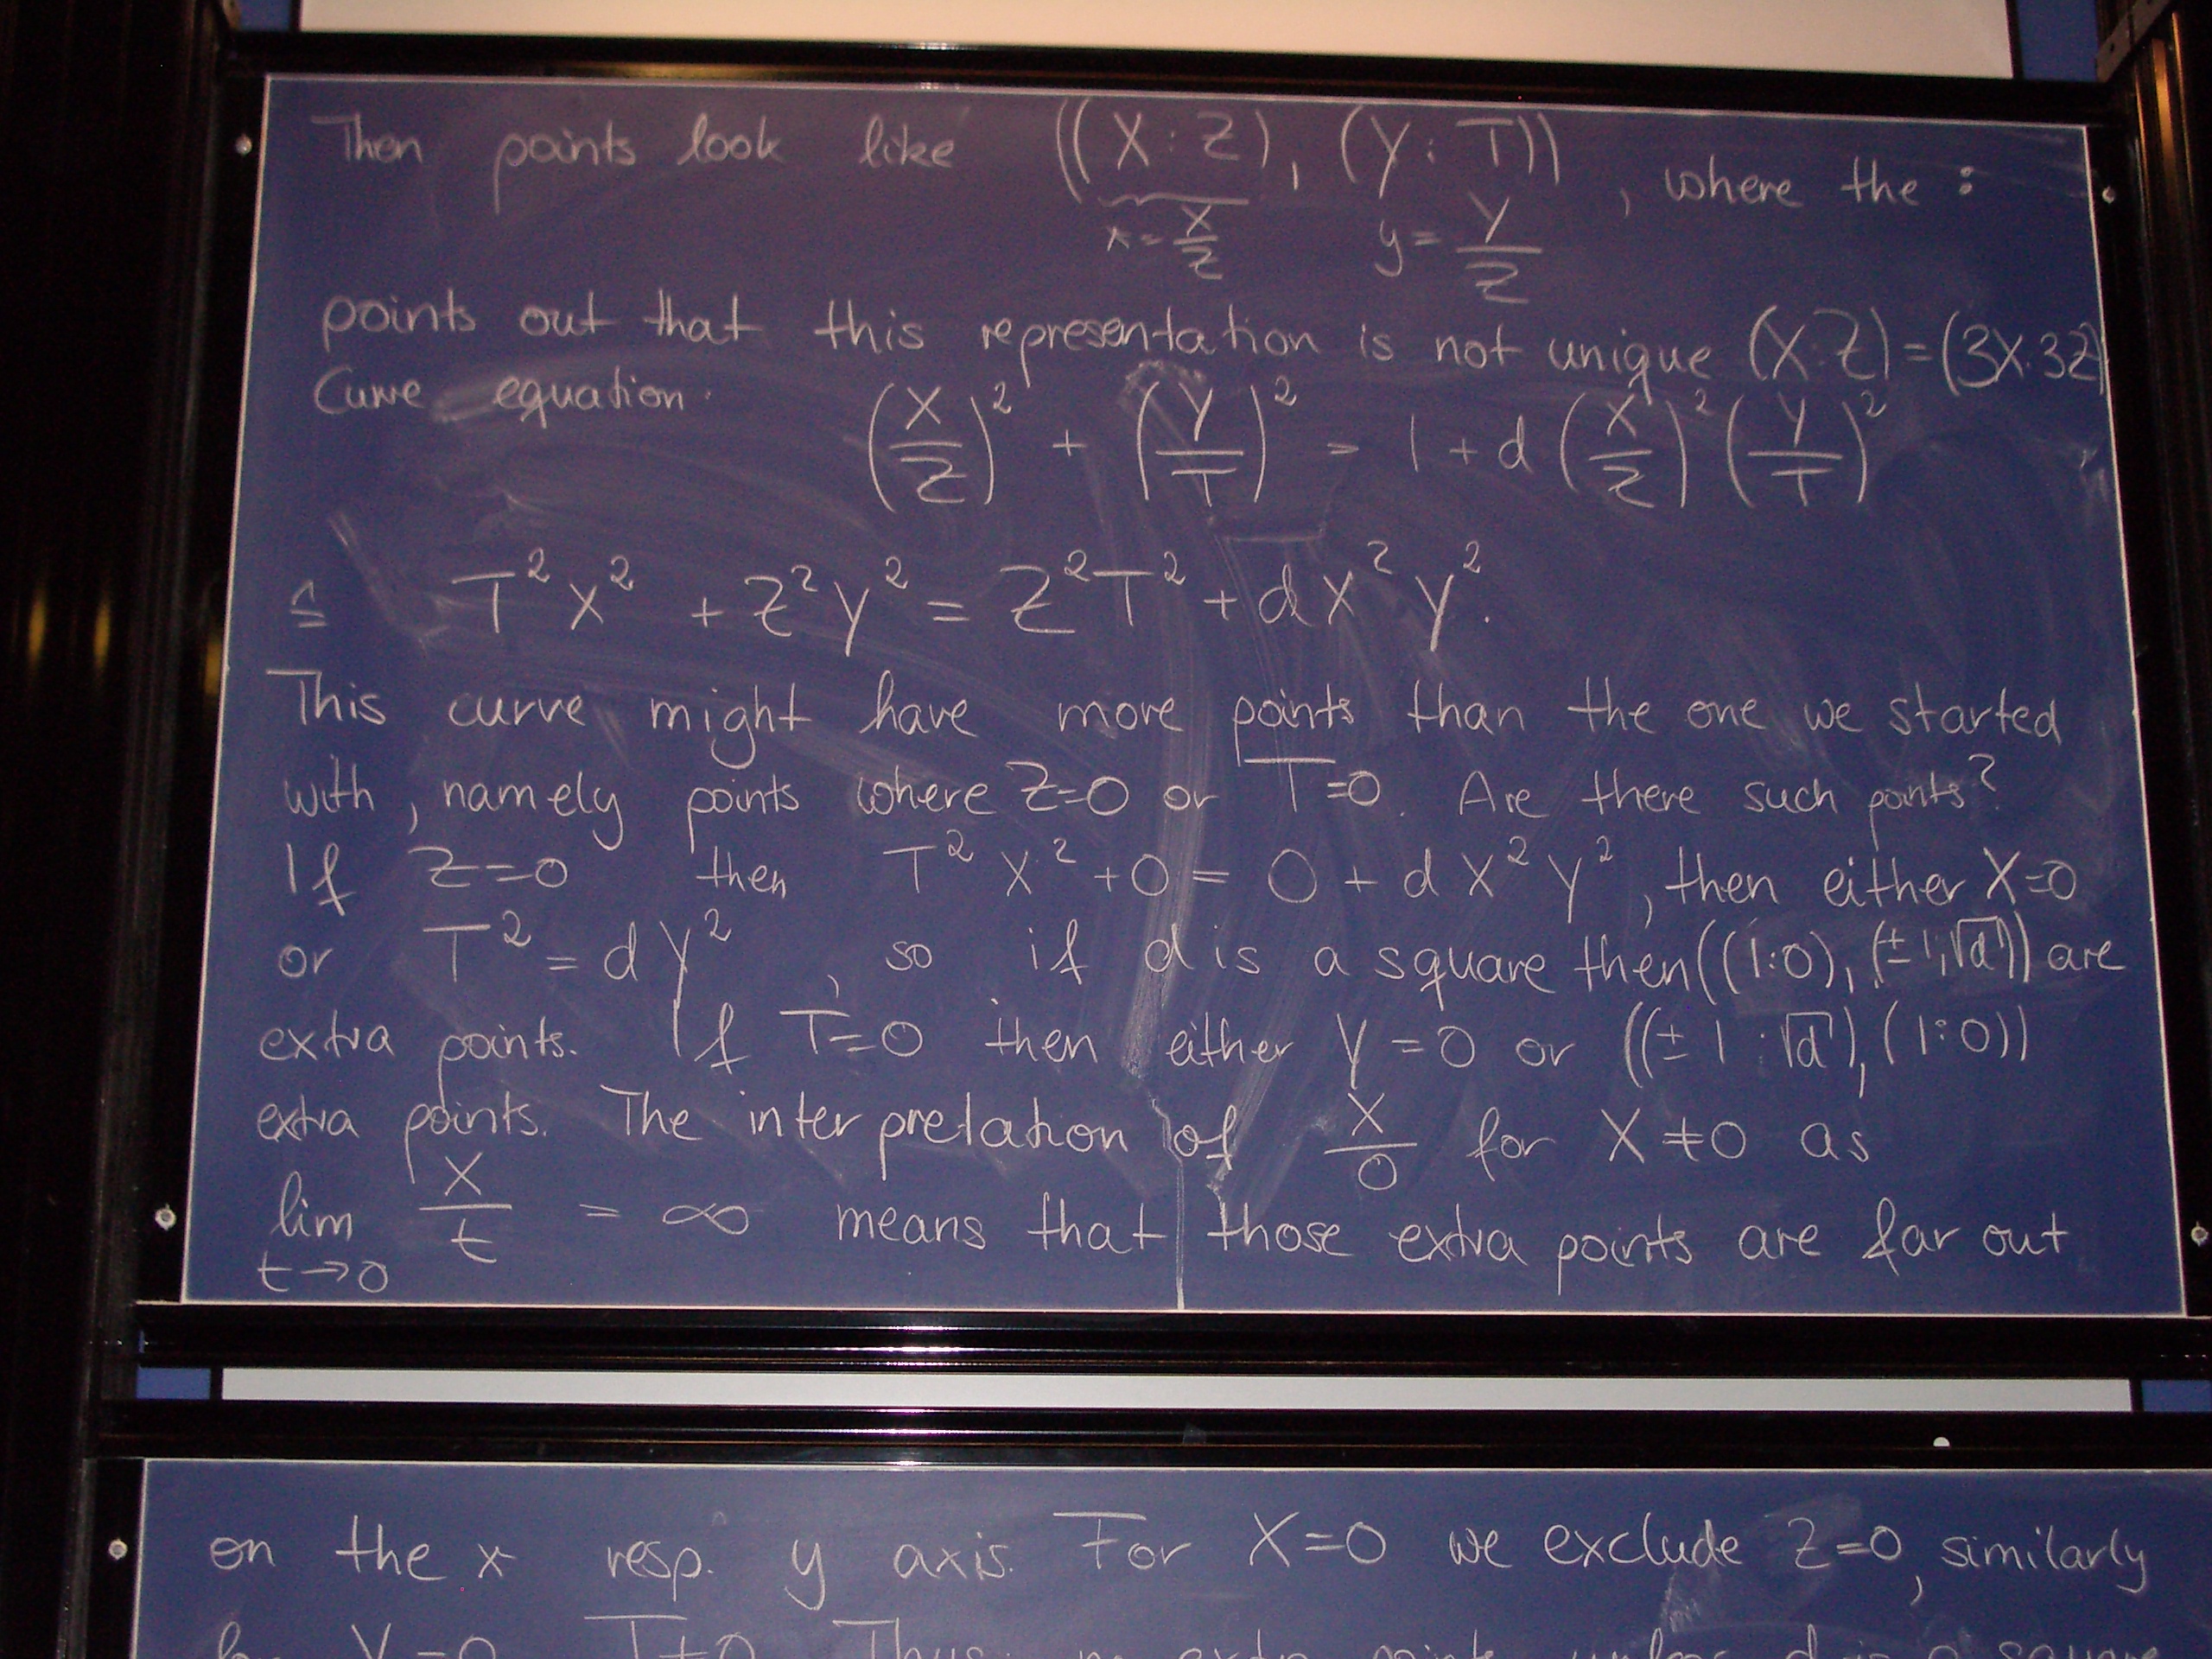 Then points look like ((X:Z), (Y:T)), where the :
x=X/Z y=Y/Z
points out that this representation is not unique (X:Z)=(3X:3Z)
Curve equation: (X/Z)² + (Y/T)² = 1+d (X/Z)² (Y/T)²
≙ T²X² + Z²Y² = Z²T² + dX²Y².
This curve might have more points than the one we started
with, namely points where Z=0 or T=0. Are there such points?
If Z=0 then T²X²+0 = 0 + dX²Y², then either X=0
or T² = dY², so if d is a square then ((1:0), (±1:√d)) are
extra points. If T=0 then either Y=0 or ((±1:√d), (1:0))
extra points. The interpretation of X/0 for X≠0 as
lim t→0 X/t = ∞ means that those extra points are far out
on the x resp. y axis. For X=0 we exclude Z=0, similarly
for Y=0 T≠0. Thus no extra points unless d is a square